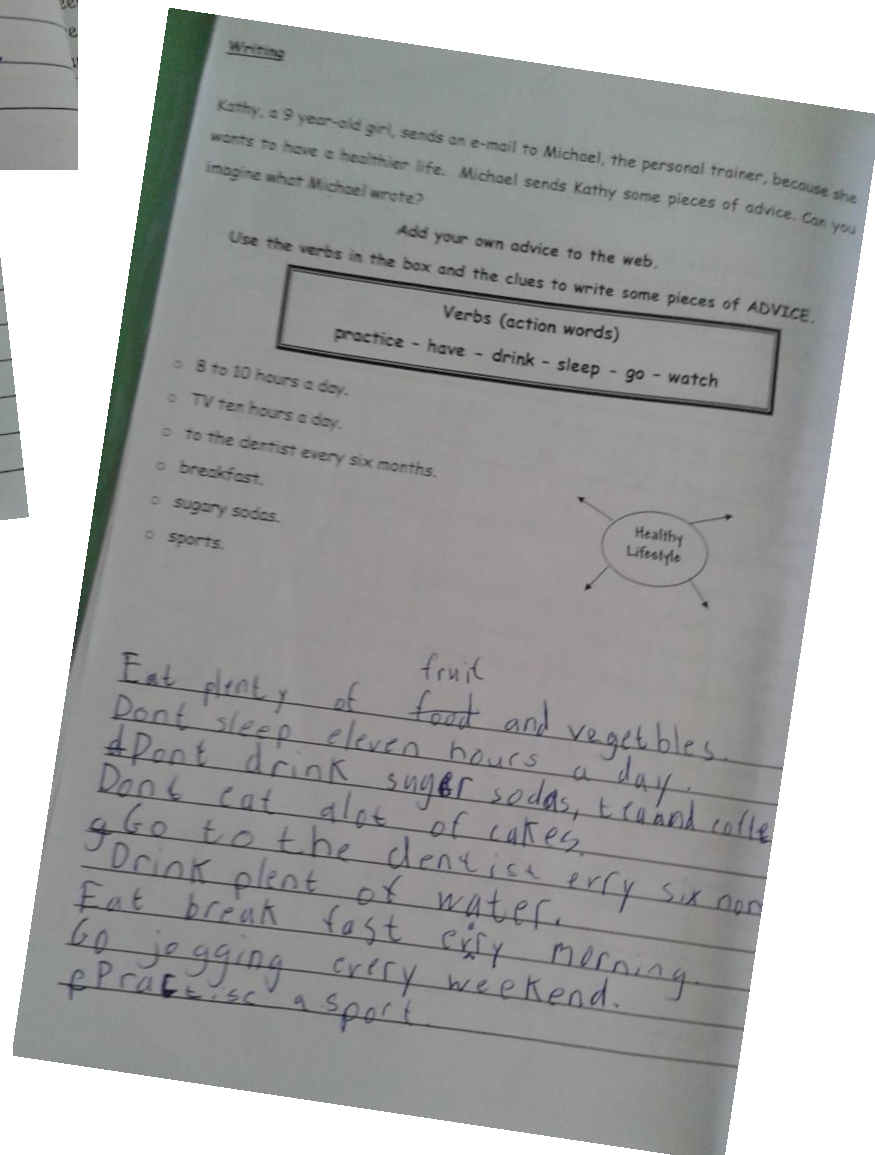 Writing
Kathy, a 9 year-old girl, sends an e-mail to Michael, the personal trainer, because she
wants to have a healthier life. Michael sends Kathy some pieces of advice. Can you
imagine what Michael wrote?
Add your own advice to the web.
Use the verbs in the box and the clues to write some pieces of ADVICE.
Verbs (action words)
practice - have - drink - sleep - go - watch
○ 8 to 10 hours a day.
○ TV ten hours a day.
○ to the dentist every six months.
○ breakfast.
○ sugary sodas.
○ sports.
Healthy
Lifestyle
fruit
Eat plenty of food and vegetables.
Dont sleep eleven hours a day.
Dont drink suger sodas, tea and coffe
Dont eat alot of cakes.
Go to the dentist erry six mon
Drink plent of water.
Eat break fast erry morning.
Go jogging every weekend.
Practise a sport.